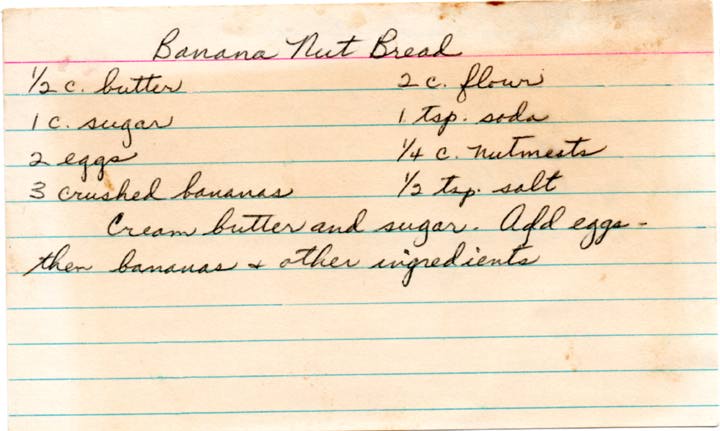 Banana Nut Bread
1/2 c. butter 2 c. flour
1 c. sugar 1 tsp. soda
2 eggs 1/4 c. nutmeats
3 crushed bananas 1/2 tsp. salt
Cream butter and sugar. Add eggs -
then bananas + other ingredients